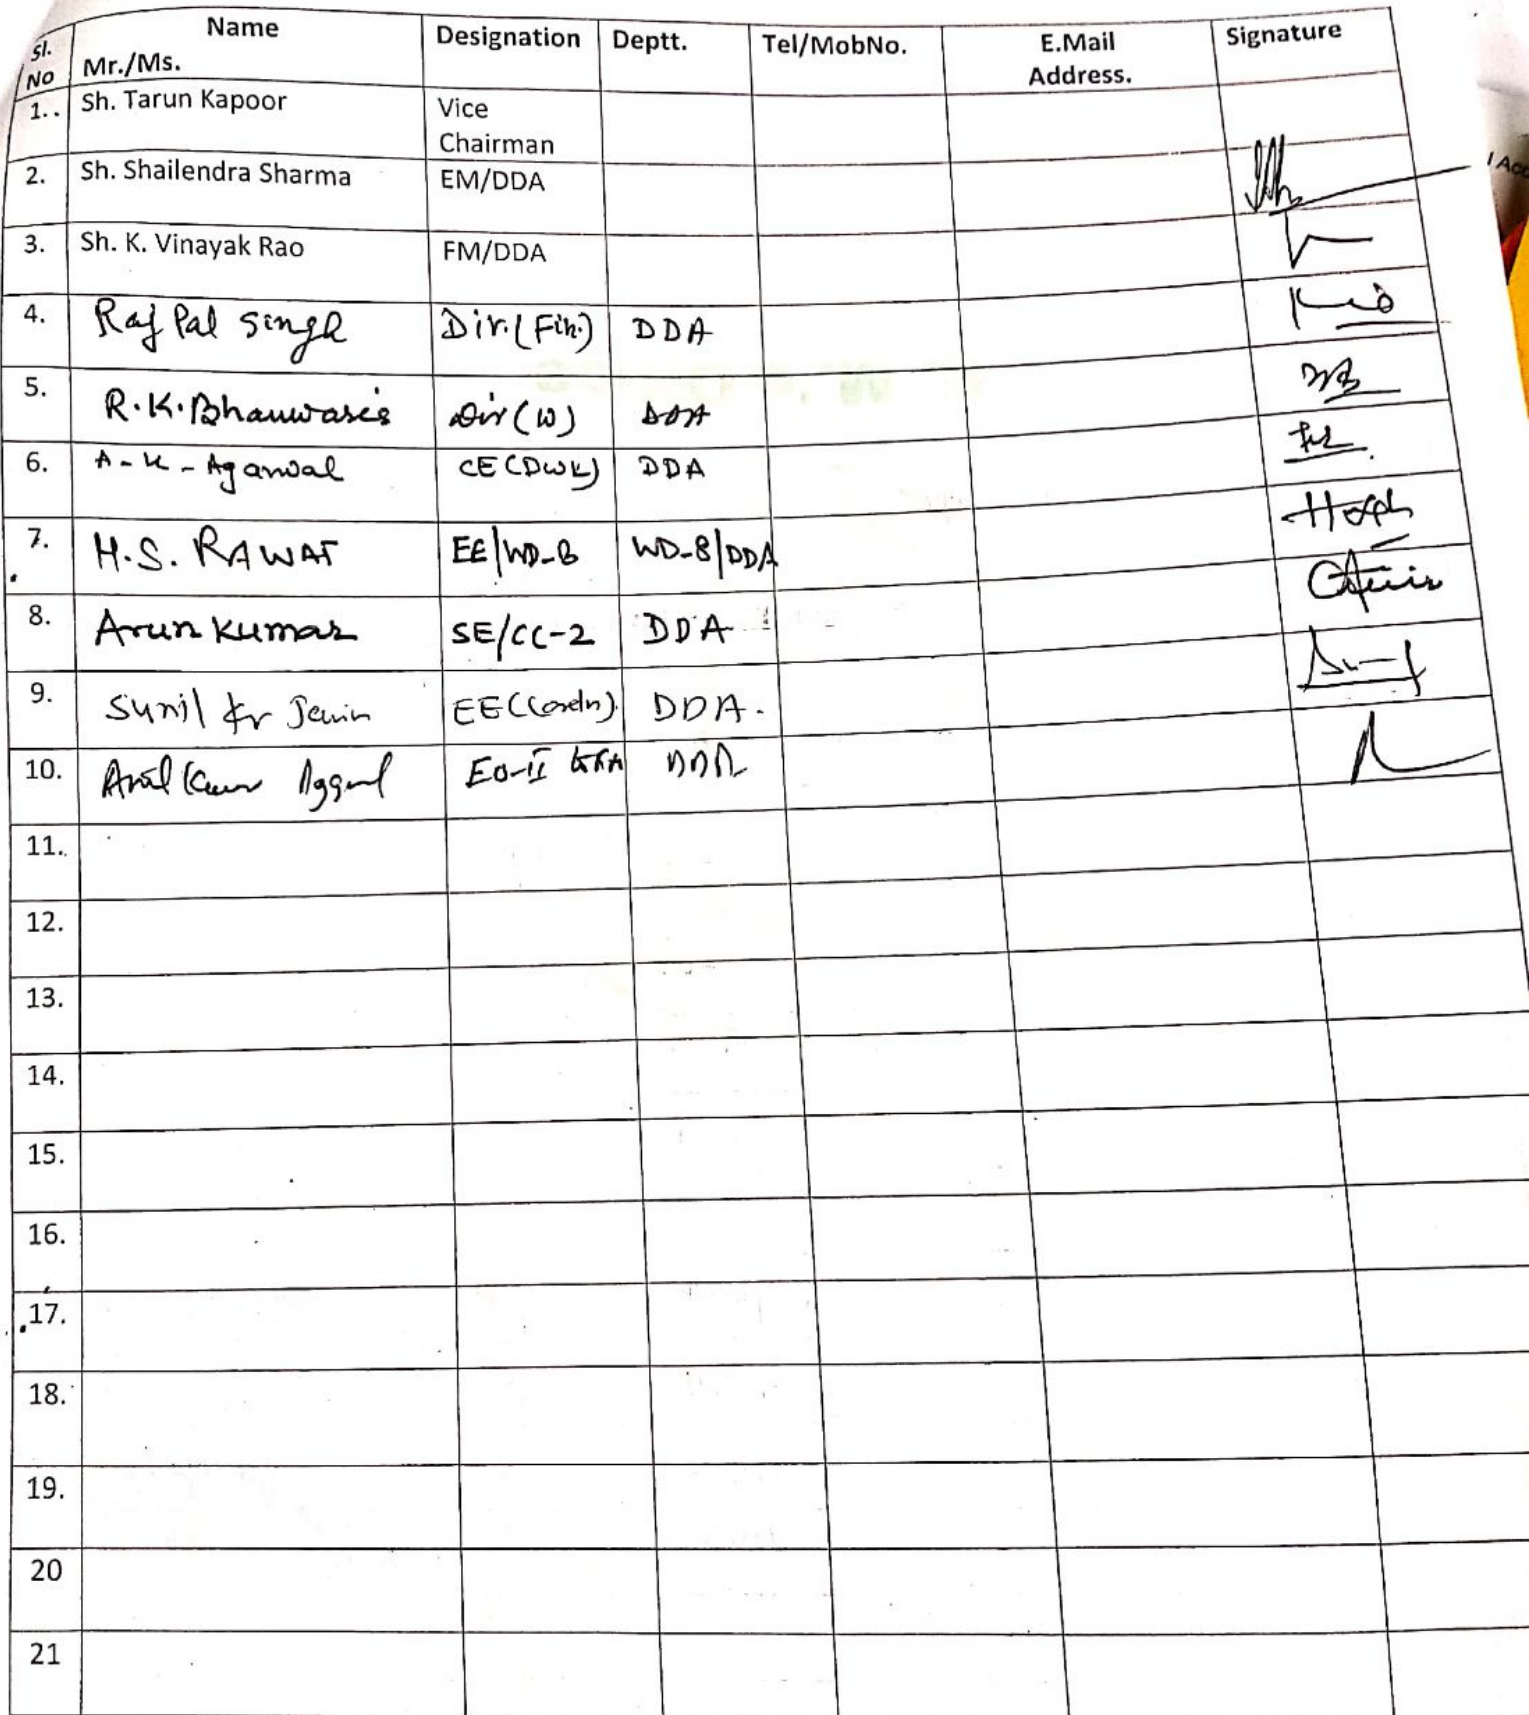 Sl. No Name Mr./Ms. Designation Deptt. Tel/MobNo. E.Mail Address. Signature
1.. Sh. Tarun Kapoor Vice Chairman
2. Sh. Shailendra Sharma EM/DDA
3. Sh. K. Vinayak Rao FM/DDA
4. Raj Pal Singh Dir.(Fin.) DDA
5. R.K. Dir(W) DDA
6. A-K-Agarwal CE(DWK) DDA
7. H.S. RAWAT EE/WD-8 WD-8/DDA
8. Arun Kumar SE/CC-2 DDA
9. Sunil Kr Jain EE(Coordn). DDA.
10. Anil Kumar EO-II DDA
11.
12.
13.
14.
15.
16.
17.
18.
19.
20
21